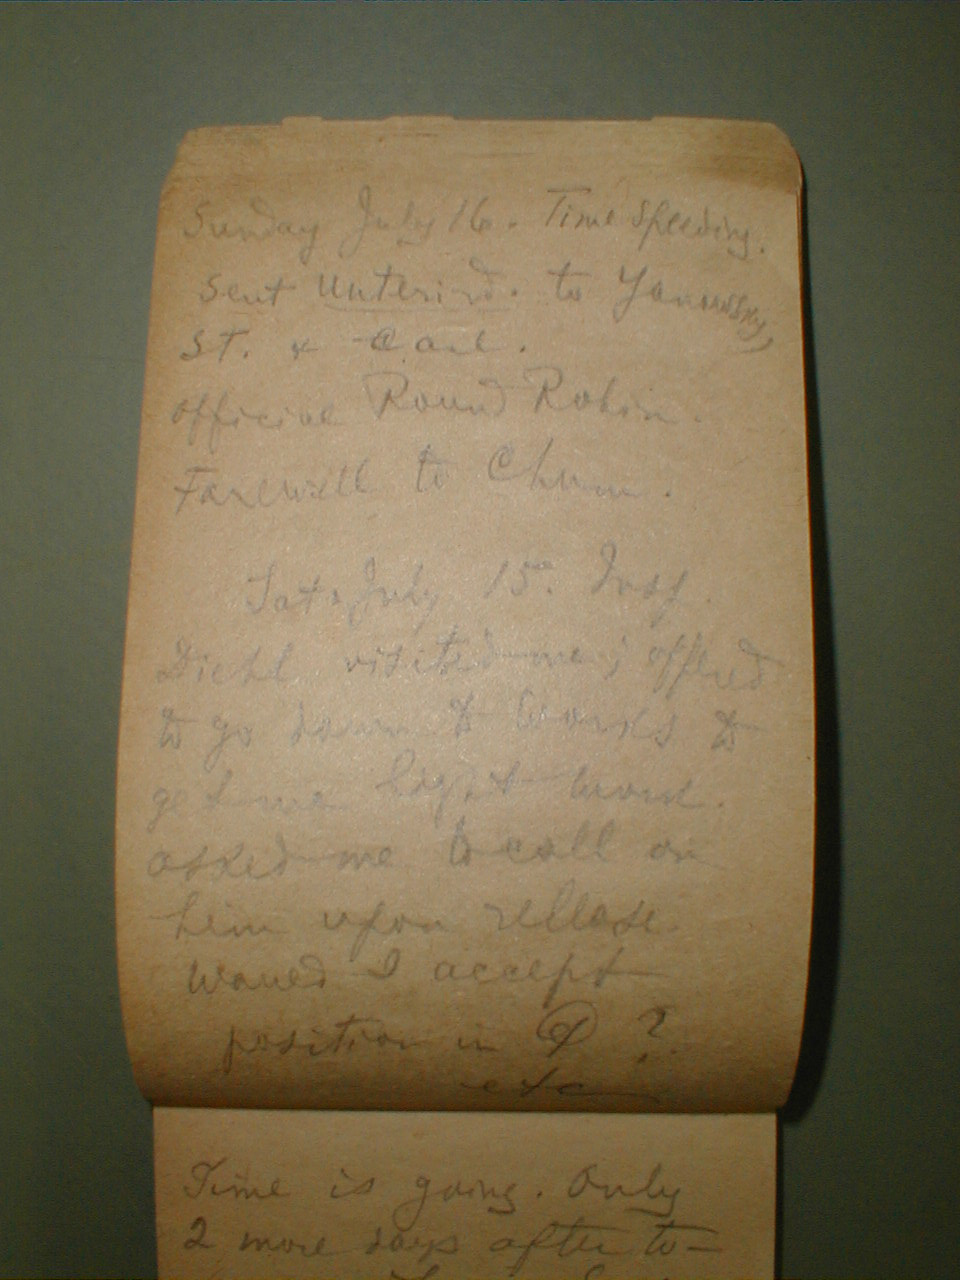 Sunday July 16. Time speeding.
Sent Unterird. to Yanovsky,
ST. & Carl.
Official Round Robin.
Farewell to Chum.
Sat. July 15.
Diehl visited me; offered
to go down to works to
get me light work.
asked me to call on
him upon release
Would I accept
position in P ?
etc
Time is going. Only
2 more days after to-